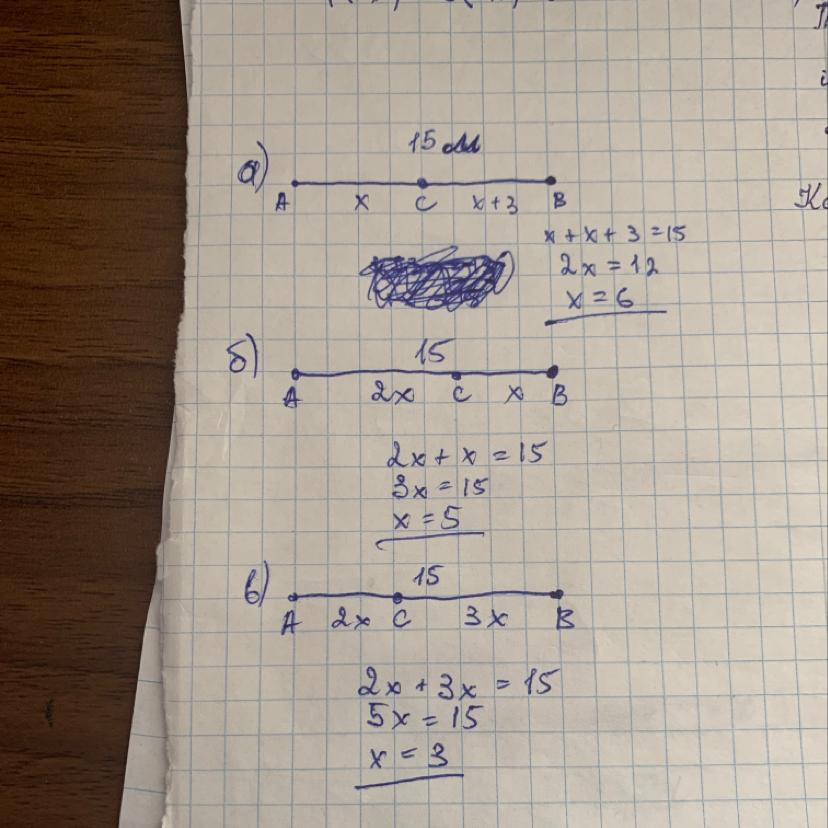 а) 15 м
A x C x+3 B
x + x + 3 = 15
2x = 12
x = 6
б) 15
A 2x C x B
2x + x = 15
3x = 15
x = 5
в) 15
A 2x C 3x B
2x + 3x = 15
5x = 15
x = 3